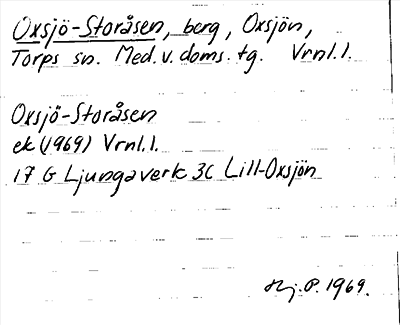 Oxsjö-Storåsen, berg, Oxsjön,
Torps sn. Med. v. doms. tg. Vrnl. l.
Oxsjö-Storåsen
ek (1969) Vrnl. l.
17 G Ljungaverk 3C Lill-Oxsjön
Hj. P. 1969.